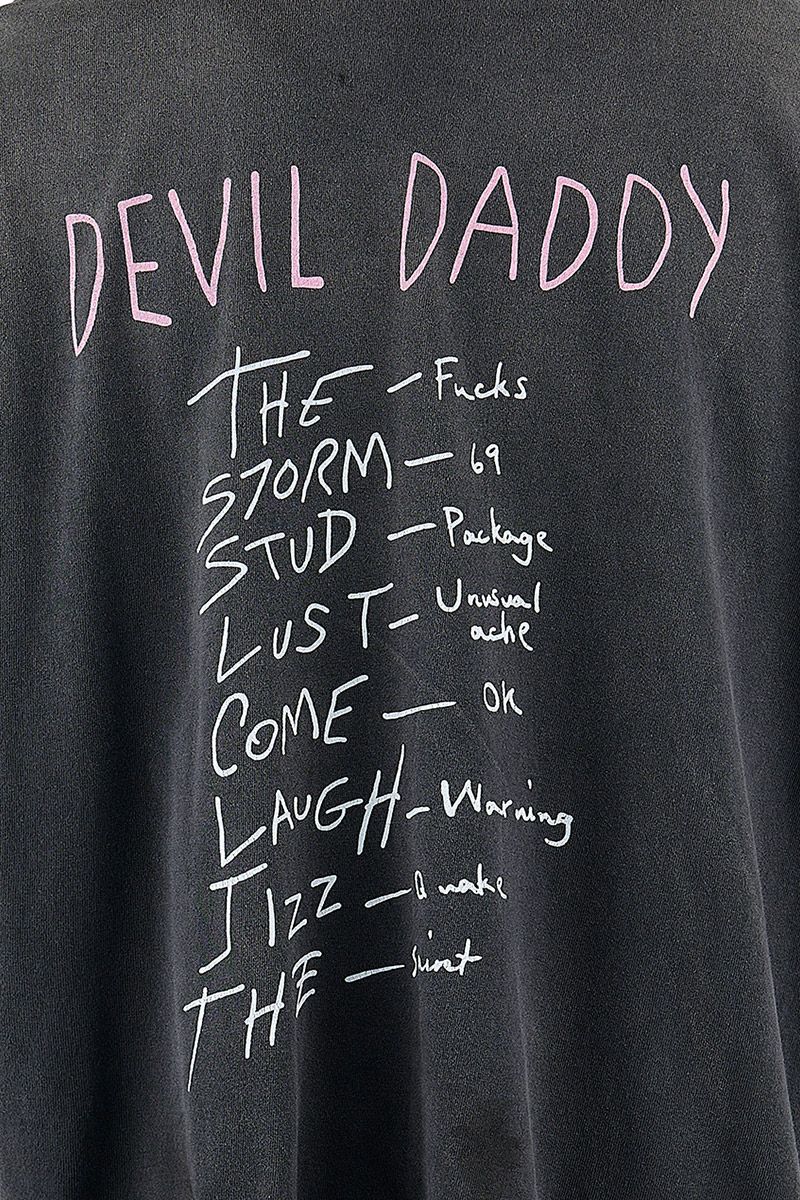 DEVIL DADDY
THE - Fucks
STORM - 69
STUD - Package
LUST - Unusual
ache
COME - OK
LAUGH - Warning
JIZZ - Quake
THE -